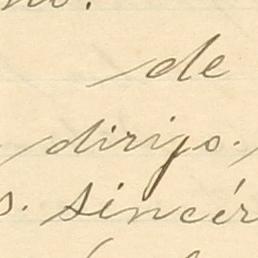 de
dirijo.
s. sincér